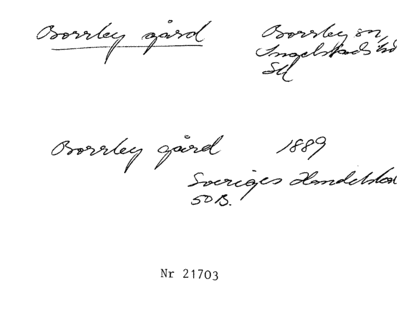 Borrby gård Borrby sn,
Ingelstads hd
Sk
Borrby gård 1889
Sveriges Handelskal
50B.
Nr 21703